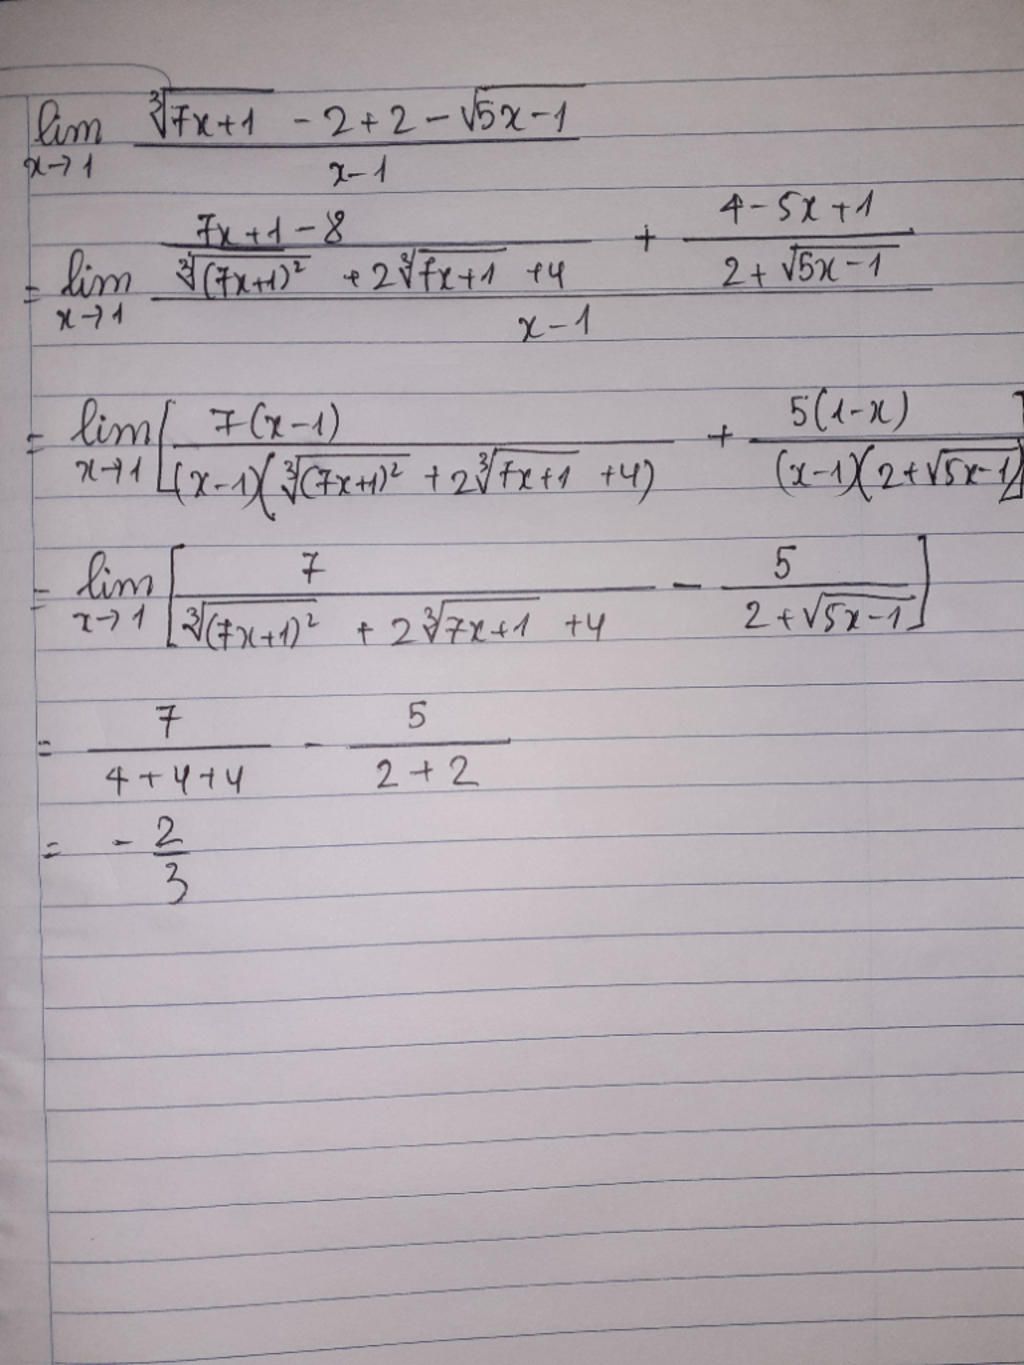 lim x→1 (∛(7x+1) - 2 + 2 - √(5x-1)) / (x-1)
= lim x→1 ((7x+1-8) / (∛(7x+1)² + 2∛(7x+1) + 4) + (4-5x+1) / (2+√(5x-1))) / (x-1)
= lim x→1 [ 7(x-1) / ((x-1)(∛(7x+1)² + 2∛(7x+1) + 4)) + 5(1-x) / ((x-1)(2+√(5x-1))) ]
= lim x→1 [ 7 / (∛(7x+1)² + 2∛(7x+1) + 4) - 5 / (2+√(5x-1)) ]
= 7 / (4+4+4) - 5 / (2+2)
= - 2/3